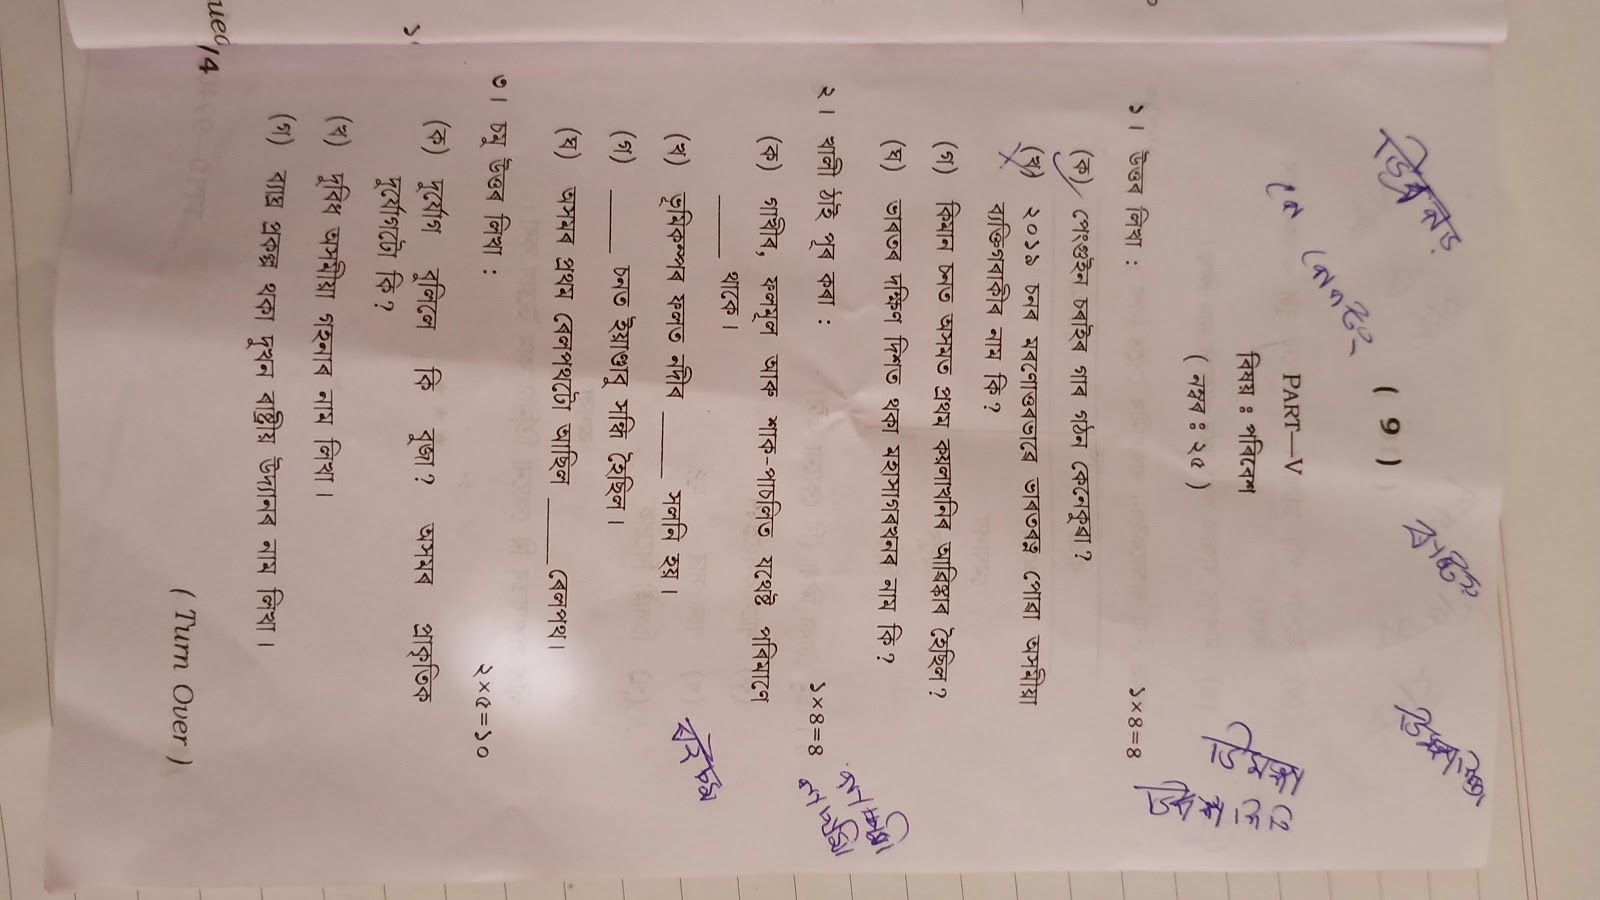 ( 9 )
PART—V
বিষয় : পৰিবেশ
( নম্বৰ : ২৫ )
১। উত্তৰ লিখা : ১×৪=৪
(ক) পেংগুইন চৰাইৰ গাৰ গঠন কেনেকুৱা ?
(খ) ২০১৯ চনৰ মৰণোত্তৰভাৱে ভাৰতৰত্ন পোৱা অসমীয়া
ব্যক্তিগৰাকীৰ নাম কি ?
(গ) কিমান চনত অসমত প্ৰথম কয়লাখনিৰ আৱিষ্কাৰ হৈছিল ?
(ঘ) ভাৰতৰ দক্ষিণ দিশত থকা মহাসাগৰখনৰ নাম কি ?
২। খালী ঠাই পূৰ কৰা : ১×৪=৪
(ক) গাখীৰ, ফলমূল আৰু শাক-পাচলিত যথেষ্ট পৰিমাণে
_____ থাকে।
(খ) ভূমিকম্পৰ ফলত নদীৰ _____ সলনি হয়।
(গ) _____ চনত ইয়াণ্ডাবু সন্ধি হৈছিল।
(ঘ) অসমৰ প্ৰথম ৰেলপথটো আছিল _____ ৰেলপথ।
৩। চমু উত্তৰ লিখা : ২×৫=১০
(ক) দুৰ্যোগ বুলিলে কি বুজা ? অসমৰ প্ৰাকৃতিক
দুৰ্যোগটো কি ?
(খ) দুবিধ অসমীয়া গহনাৰ নাম লিখা।
(গ) ব্যাঘ্ৰ প্ৰকল্প থকা দুখন ৰাষ্ট্ৰীয় উদ্যানৰ নাম লিখা।
( Turn Over )
/4